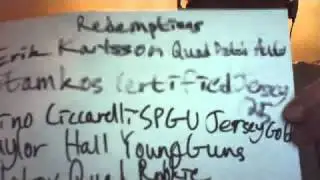 Redemptions
Erik Karlsson Quad
Stamkos Certified Jersey
25
ino Ciccarelli SPGU Jersey Gold
aylor Hall Young Guns
Quad Rookie